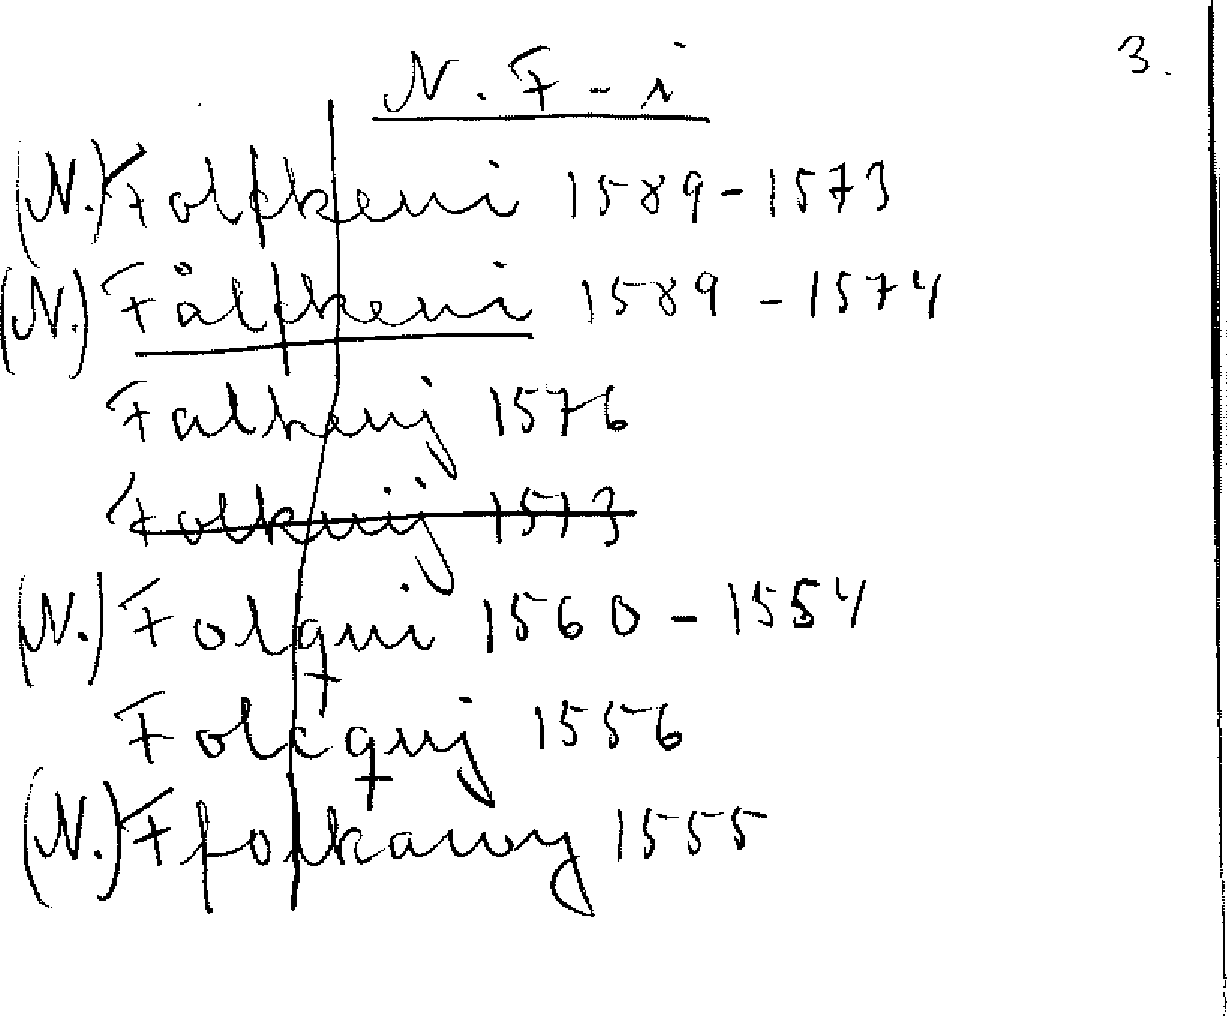 3.
N. F - i
(N.) Folfkeui 1589 - 1573
(N.) Fålfkeui 1589 - 1574
Falkeuj 1576
Folkuij 1573
(N.) Folqui 1560 - 1554
Folcquj 1556
(N.) Ffolkawy 1555